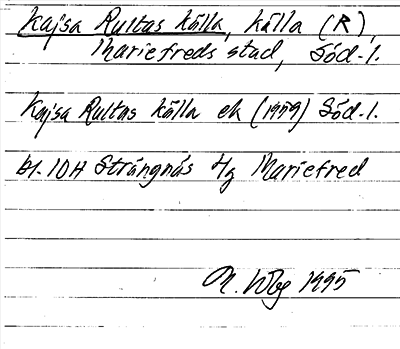 Kajsa Rultas källa, källa (R),
Mariefreds stad, Söd.l.
Kajsa Rultas källa ek (1959) Söd.l.
bl. 10H Strängnäs Mariefred
M. 1995